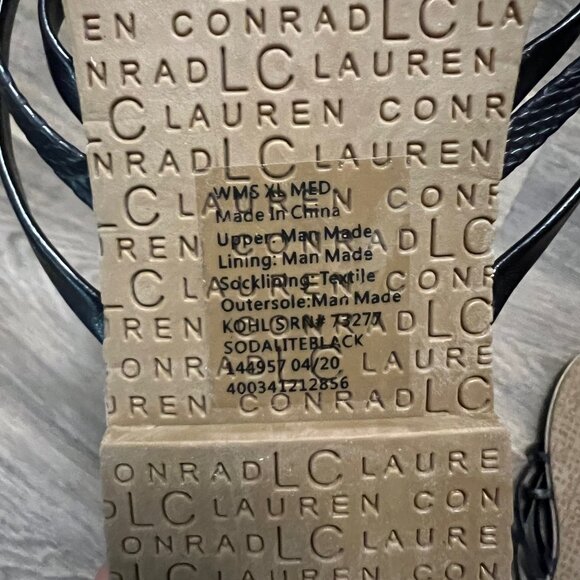 EN CONRAD LC LA
NRAD LC LAUREN
LC LAUREN CONR
NRAD LC LAUREN
WMS XL MED
LC LAUREN CON
Made In China
Upper: Man Made
UREN CONRAD LC
Lining: Man Made
LC LAUREN
Socklining: Textile
Outersole:Man Made
REN CONRAD LC
KOHL'S RN# 73277
SODALITEBLACK
ONRAD LC LAUREN
144957 04/20
400341212856
UREN CONRAD LC
ONRAD LC LAURE
LC LAUREN CON
ONRAD LC LAURE
LC LAUREN CON